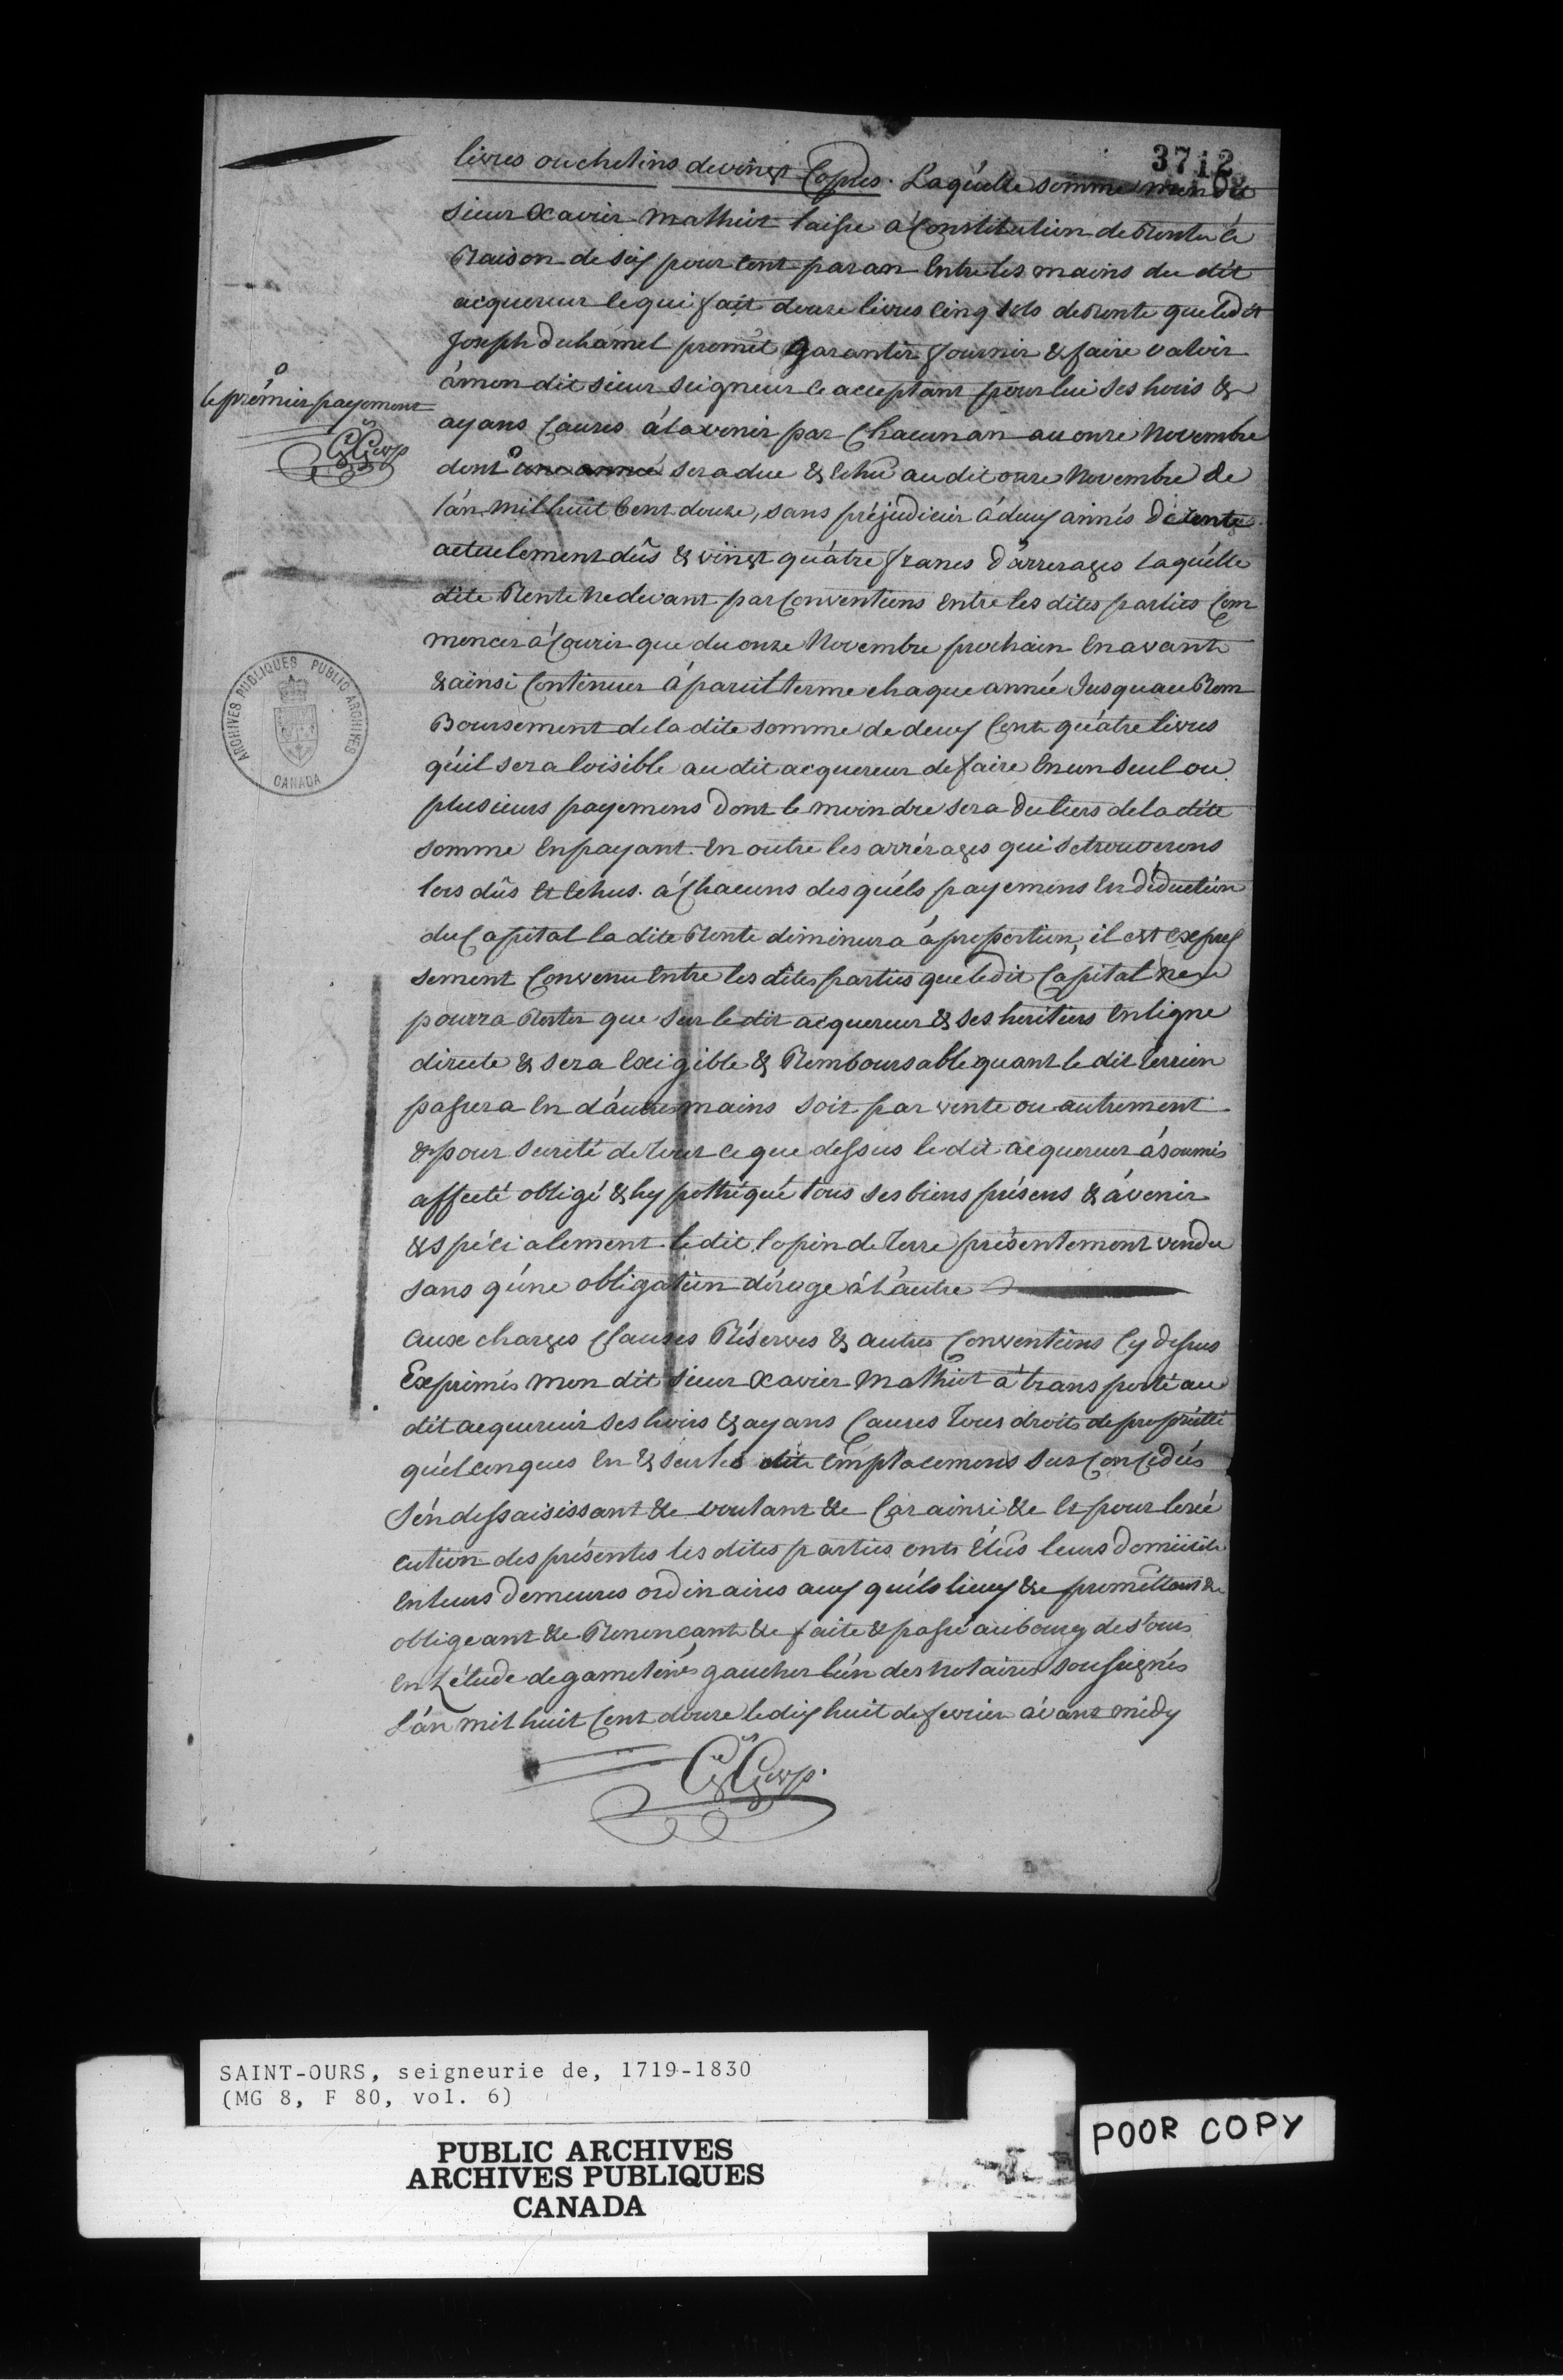 3712
livres ou chelins de vingt Copres. Laquélle somme mon dit
sieur Xavier Mathiot laisse à Constitution de Rente à
Raison de six pour Cent par an Entre les mains du dit
acquereur ce qui fait douze livres Cinq sols de Rente que le dit
Joseph Duhámel promét garantir fournir & faire valoir
à mon dit sieur seigneur ce acceptant pour lui ses hoirs &
o
le prémier payement
ayans Causes à l'avenir par Chacun an au onze Novembre
dont o une année sera due & Echu au dit onze Novembre de
l'án mil huit Cent douze, sans préjudicier à deux annés de rente
actuelement dûs & vingt quátre francs d'arrerages laquélle
dite Rente ne devant par Conventions Entre les dites parties Com
mencer à Courir que du onze Novembre prochain En avant
& ainsi Continuer à pareil terme chaque année Jusquau Rem
Boursement de la dite somme de deux Cent quátre livres
qu'il sera loisible au dit acquereur de faire En un seul ou
plusieurs payemens dont le moindre sera du tiers de la dite
somme En payant En outre les arrérages qui se trouverons
lors dûs Et Echus. à Chacuns des quéls payemens En déduction
du Capital la dite Rente diminura à proportion, il est Expres
sement Convenu Entre les dites parties que le dit Capital ne
pourra Rester que sur le dit acquereur & ses heritiers En ligne
directe & sera Exigible & Remboursable quant le dit terrien
passera En d'áutres mains soit par vente ou autrement
& pour sureté de tout ce que dessus le dit acquereur à soumis
affecté obligé & hypothéqué tous ses biens présens & à venir
& spécialement le dit lopin de Terre présentement vendu
sans qu'úne obligation déroge à l'áutre
Aux charges Clauses Réserves & autres Conventions Cy dessus
Exprimés mon dit sieur Xavier Mathiot à transporté au
dit acquereur ses hoirs & ayans Causes Tous droits de propriété
quélconques En & sur les dits Emplacemens sus Concédés
S'én dessaisissant &c voulant &c Car ainsi &c Et pour l'exé
cution des présentes les dites parties ont Elûs leurs domicile
En leurs demeures ordinaires aux quéls lieux &c promettant &c
obligeant &c Renonçant &c faite & passé au bourg de st ours
En L'étude de gameliné gaucher l'ún des notaires soussignés
L'án mil huit Cent douze le dix huit de fevrier ávant midy
ARCHIVES PUBLIQUES PUBLIC ARCHIVES
CANADA
SAINT-OURS, seigneurie de, 1719-1830
(MG 8, F 80, vol. 6)
PUBLIC ARCHIVES
ARCHIVES PUBLIQUES
CANADA
POOR COPY